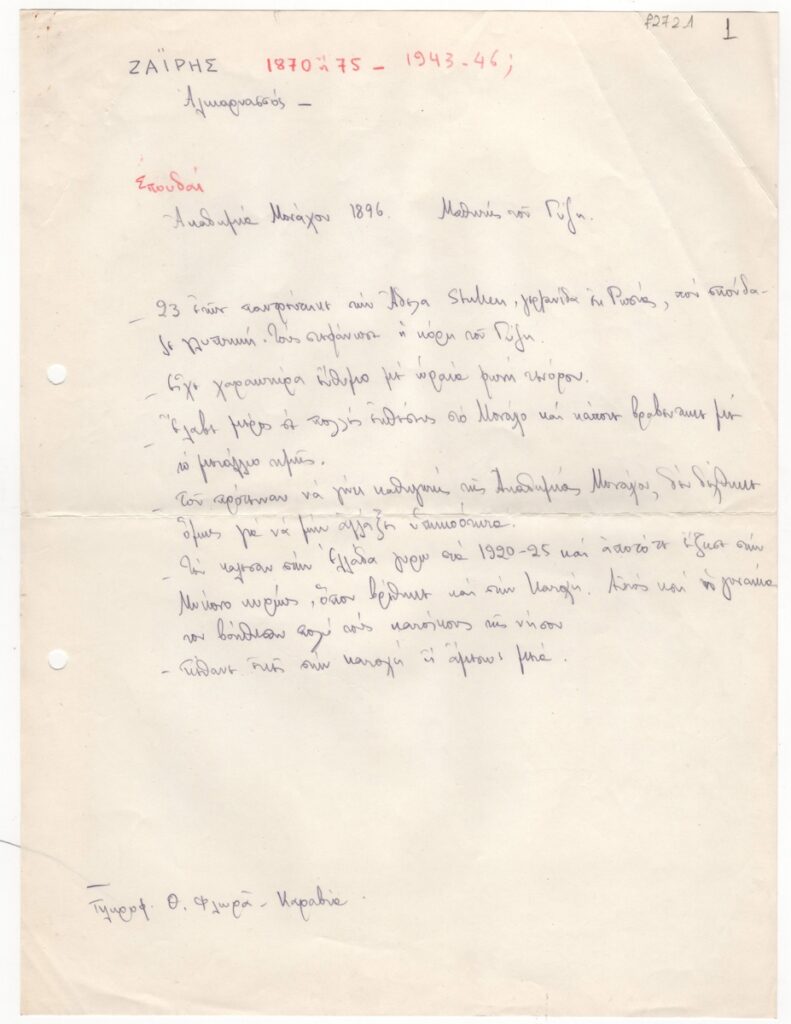 82721 1
ΖΑΪΡΗΣ 1870 ἢ 75 – 1943-46;
Ἁλικαρνασσός –
Σπουδαί
Ἀκαδημία Μονάχου 1896. Μαθητὴς τοῦ Γύζη.
– 23 ἐτῶν παντρεύτηκε τὴν Ἄδελα, γερμανίδα ἐκ Ρωσίας, ποὺ σπούδα-
ζε γλυπτική. Τοὺς στεφάνωσε ἡ κόρη τοῦ Γύζη.
– Εἶχε χαρακτήρα εὔθυμο μὲ ὡραία φωνὴ τενόρου.
– Ἔλαβε μέρος σὲ πολλὲς ἐκθέσεις στὸ Μονάχο καὶ κάποτε βραβεύτηκε μὲ
τὸ μετάλλιο τιμῆς.
– Τοῦ πρότειναν νὰ γίνει καθηγητὴς τῆς Ἀκαδημίας Μονάχου, δὲν δέχθηκε
ὅμως γιὰ νὰ μὴν ἀλλάξῃ ὑπηκοότητα.
– Τὸν κάλεσαν στὴν Ἑλλάδα γύρω στὰ 1920-25 καὶ ἀπὸ τότε ἔζησε στὴν
Μύκονο κυρίως, ὅπου βρέθηκε καὶ στὴν Κατοχή. Αὐτὸς καὶ ἡ γυναίκα
του βοήθησαν πολὺ τοὺς κατοίκους τῆς νήσου
– Πέθανε ἐκεῖ στὴν κατοχὴ ἢ ἀμέσως μετά.
Πληροφ. Θ. Φλωρᾶ – Καραβία.